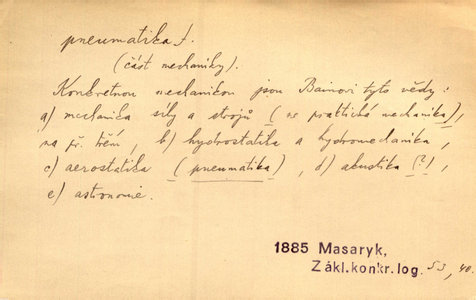 pneumatika f.
(část mechaniky).
Konkretnou mechanikou jsou Bainovi tyto vědy:
a) mechanika síly a strojů ( praktická mechanika),
na př. tření, b) hydrostatika a hydromechanika,
c) aerostatika (pneumatika), d) akustika (?),
e) astronomie.
1885 Masaryk,
Zákl.konkr.log. 53, 40.